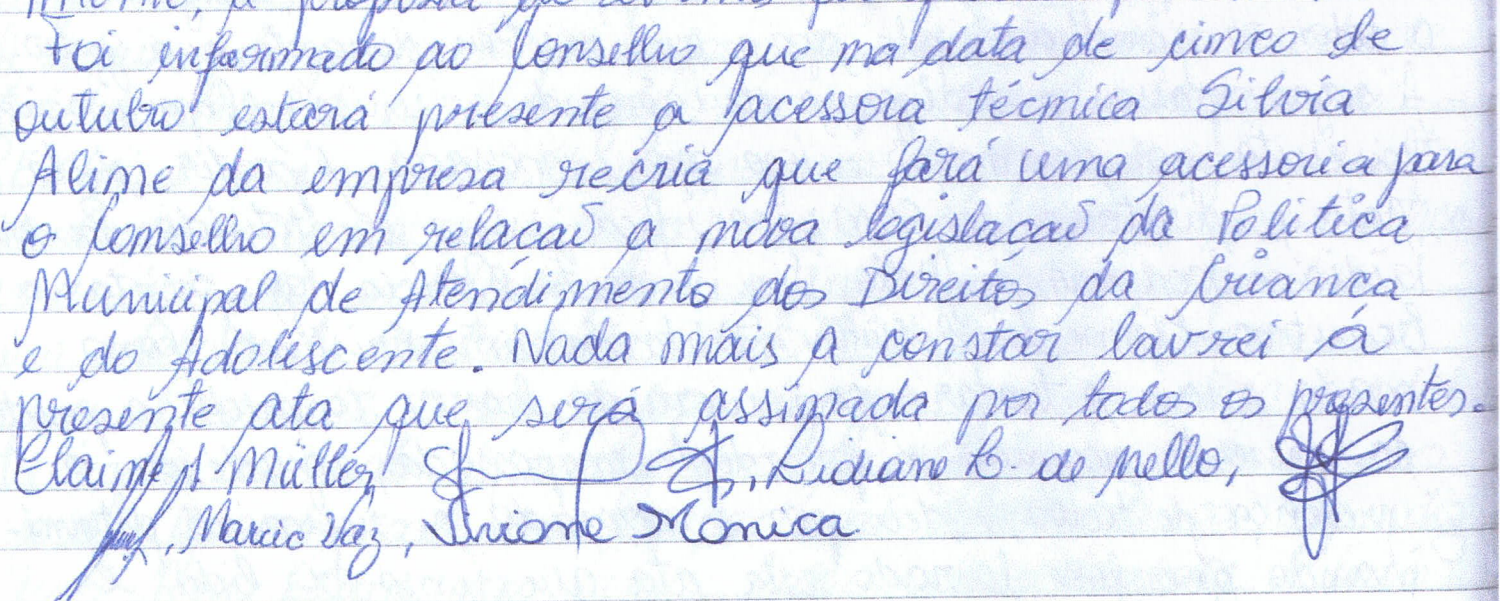 a proposta
Foi informado ao Conselho que na data de cinco de
outubro estará presente a acessora técnica Silvia
Aline da empresa recria que fará uma acessoria para
o Conselho em relação a nova legislação da Politica
Municipal de Atendimento dos Direitos da Criança
e do Adolescente. Nada mais a constar lavrei á
presente ata que será assinada por todos os presentes.
Elaine A Müller, Lidiane B. de Mello,
Marcio Vaz, Monica